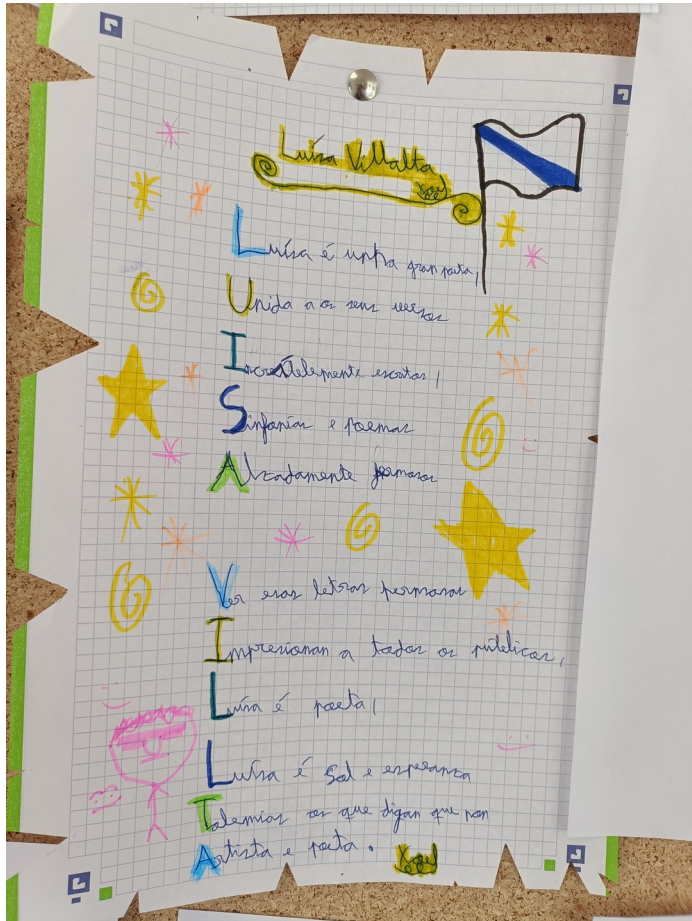 Luísa Villalta
Xoel
Luísa é unha gran poeta,
Unida a os seus versos
Increíblemente escritos,
Sinfonías e poemas
Alzadamente fermosos
Ver esas letras fermosas
Impresionan a todos os públicos,
Luísa é poeta,
Luísa é Sol e esperanza
Talemias os que digan que non
Artista e poeta.
Xoel